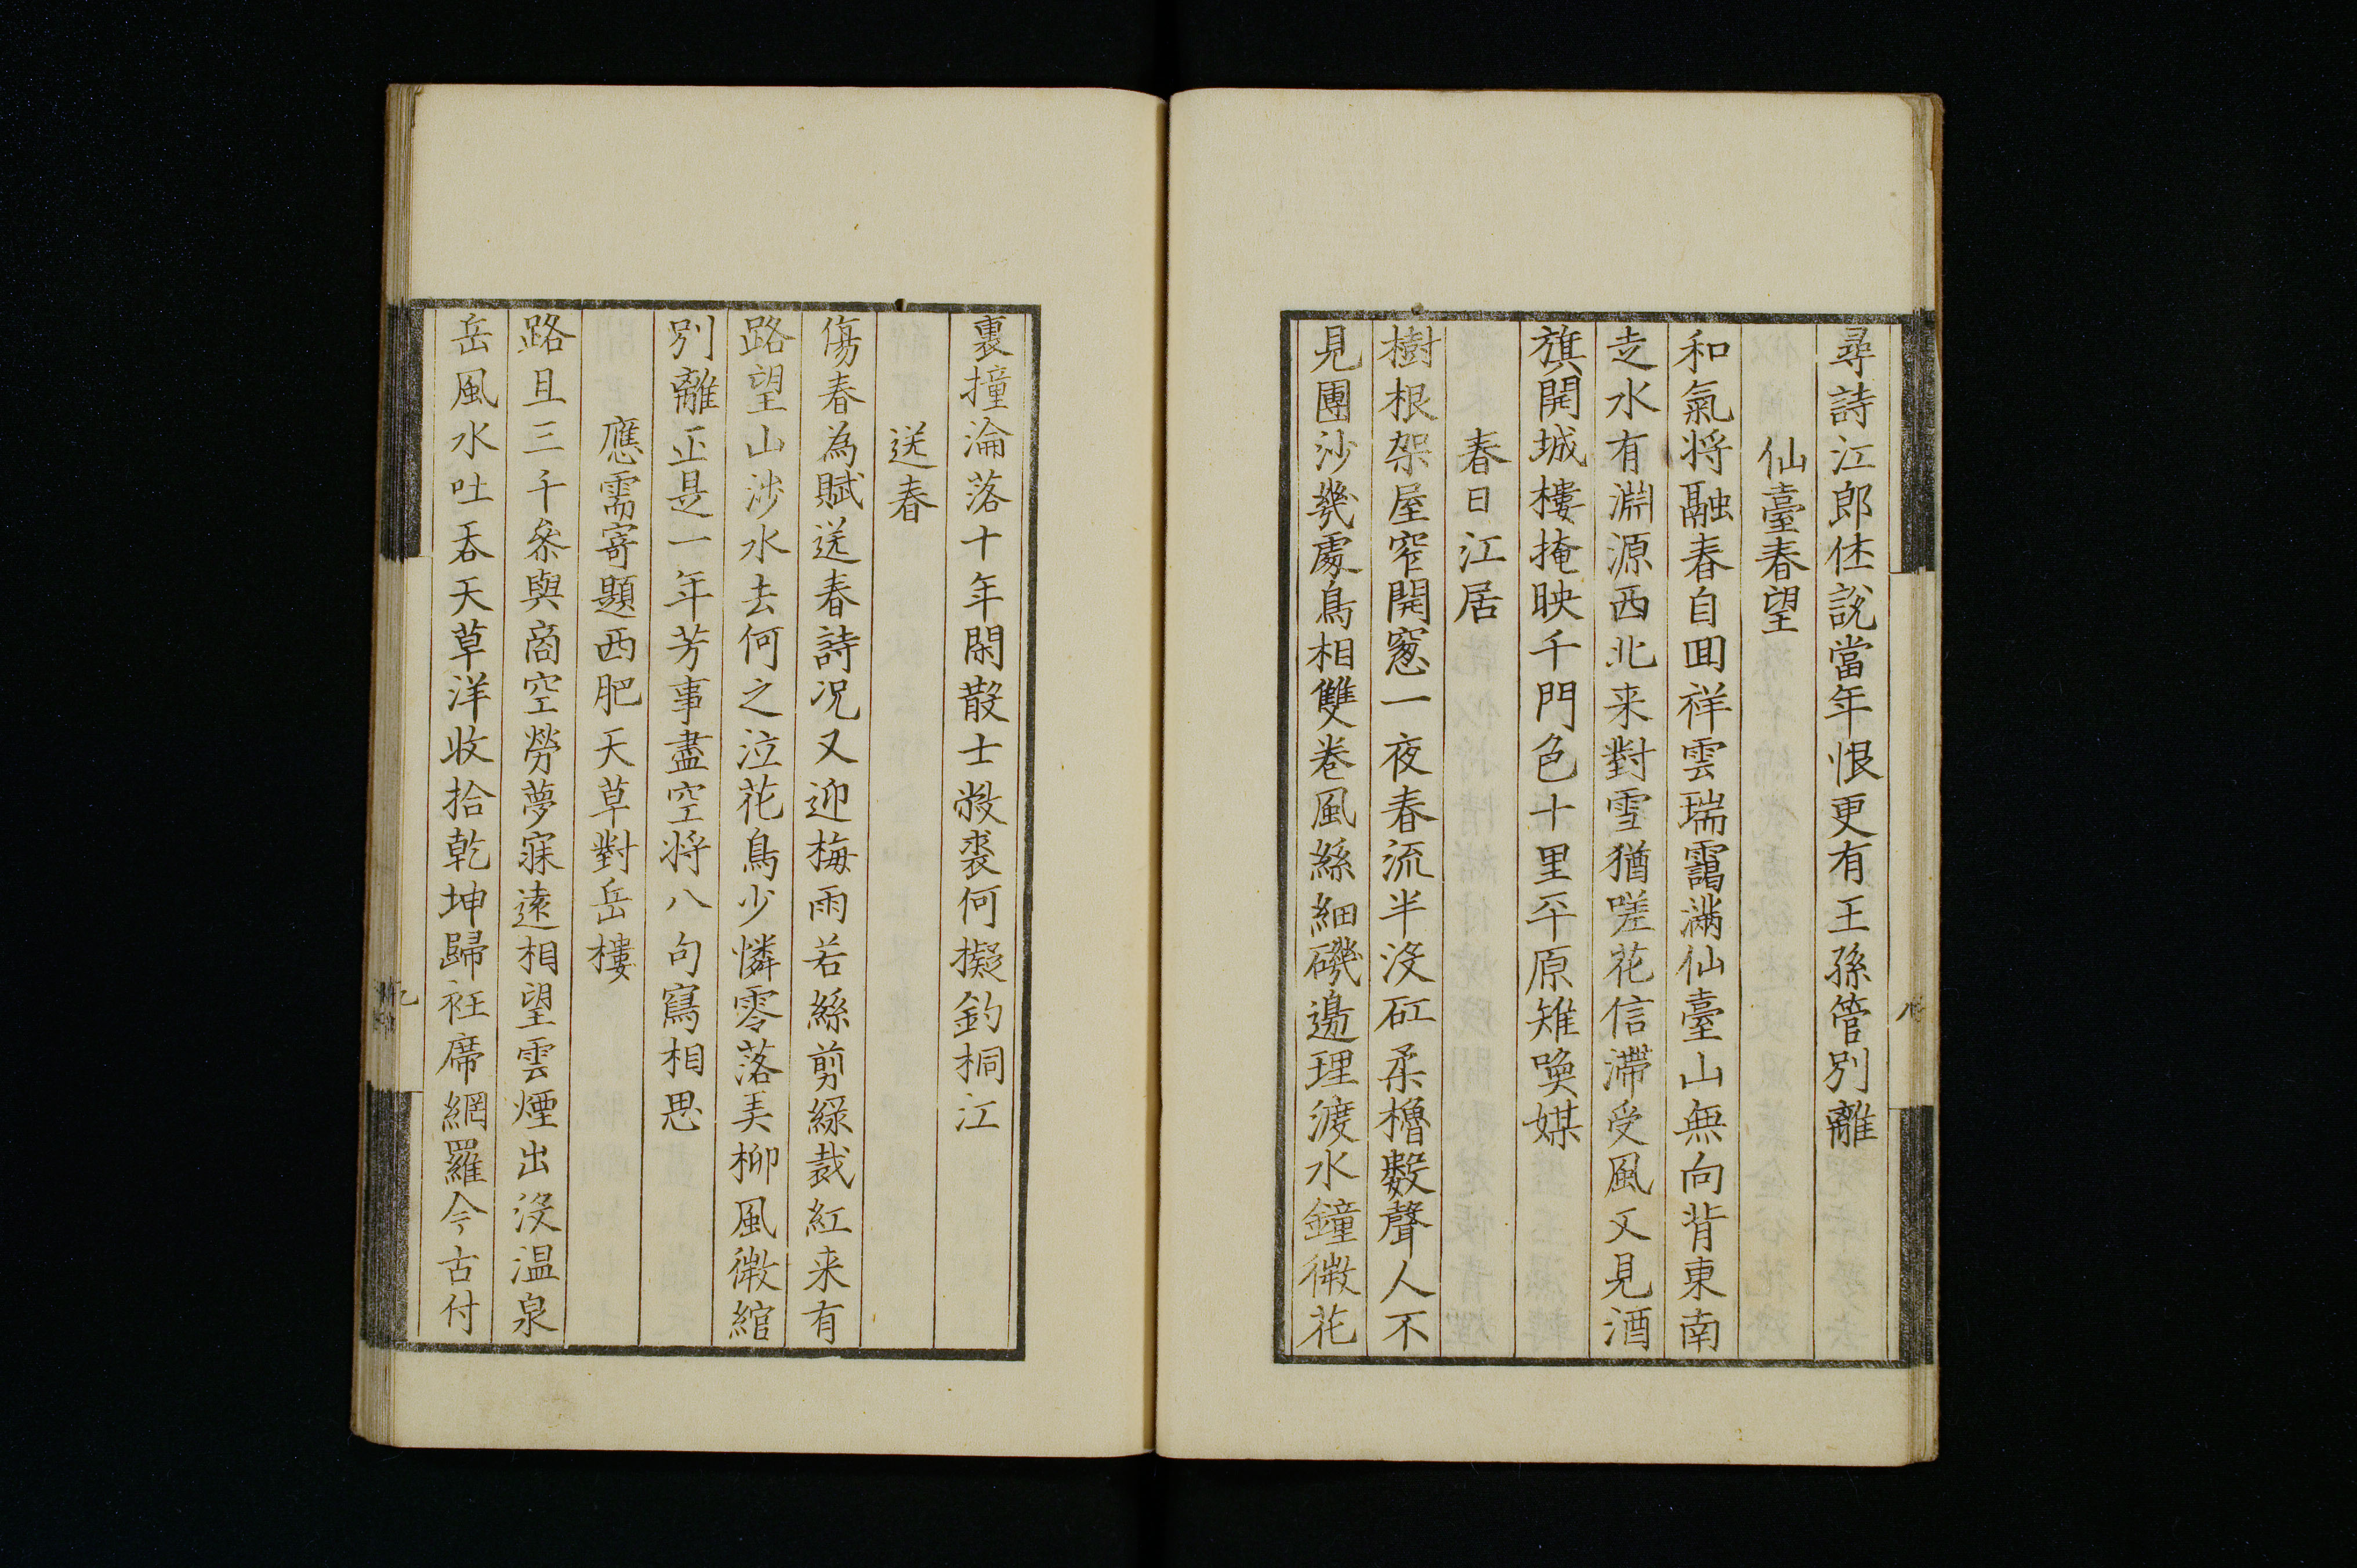 尋詩江郎休說當年恨更有王孫管別離
仙臺春望
和氣将融春自囬祥雲瑞靄滿仙臺山無向背東南
走水有淵源西北来對雪猶嗟花信滯受風又見酒
旗開城樓掩映千門色十里平原雉喚媒
春日江居
樹根架屋窄開窓一夜春流半沒矼柔櫓數聲人不
見團沙幾處鳥相雙卷風絲細磯邊理渡水鐘微花
裏撞淪落十年閑散士敝裘何擬釣桐江
送春
傷春為賦送春詩况又迎梅雨若絲剪綠裁紅来有
路望山涉水去何之泣花鳥少憐零落美柳風微綰
別離正是一年芳事盡空将八句寫相思
應需寄題西肥天草對岳樓
路且三千叅與商空勞夢寐遠相望雲煙出沒温泉
岳風水吐吞天草洋收拾乾坤歸衽席網羅今古付
八
九